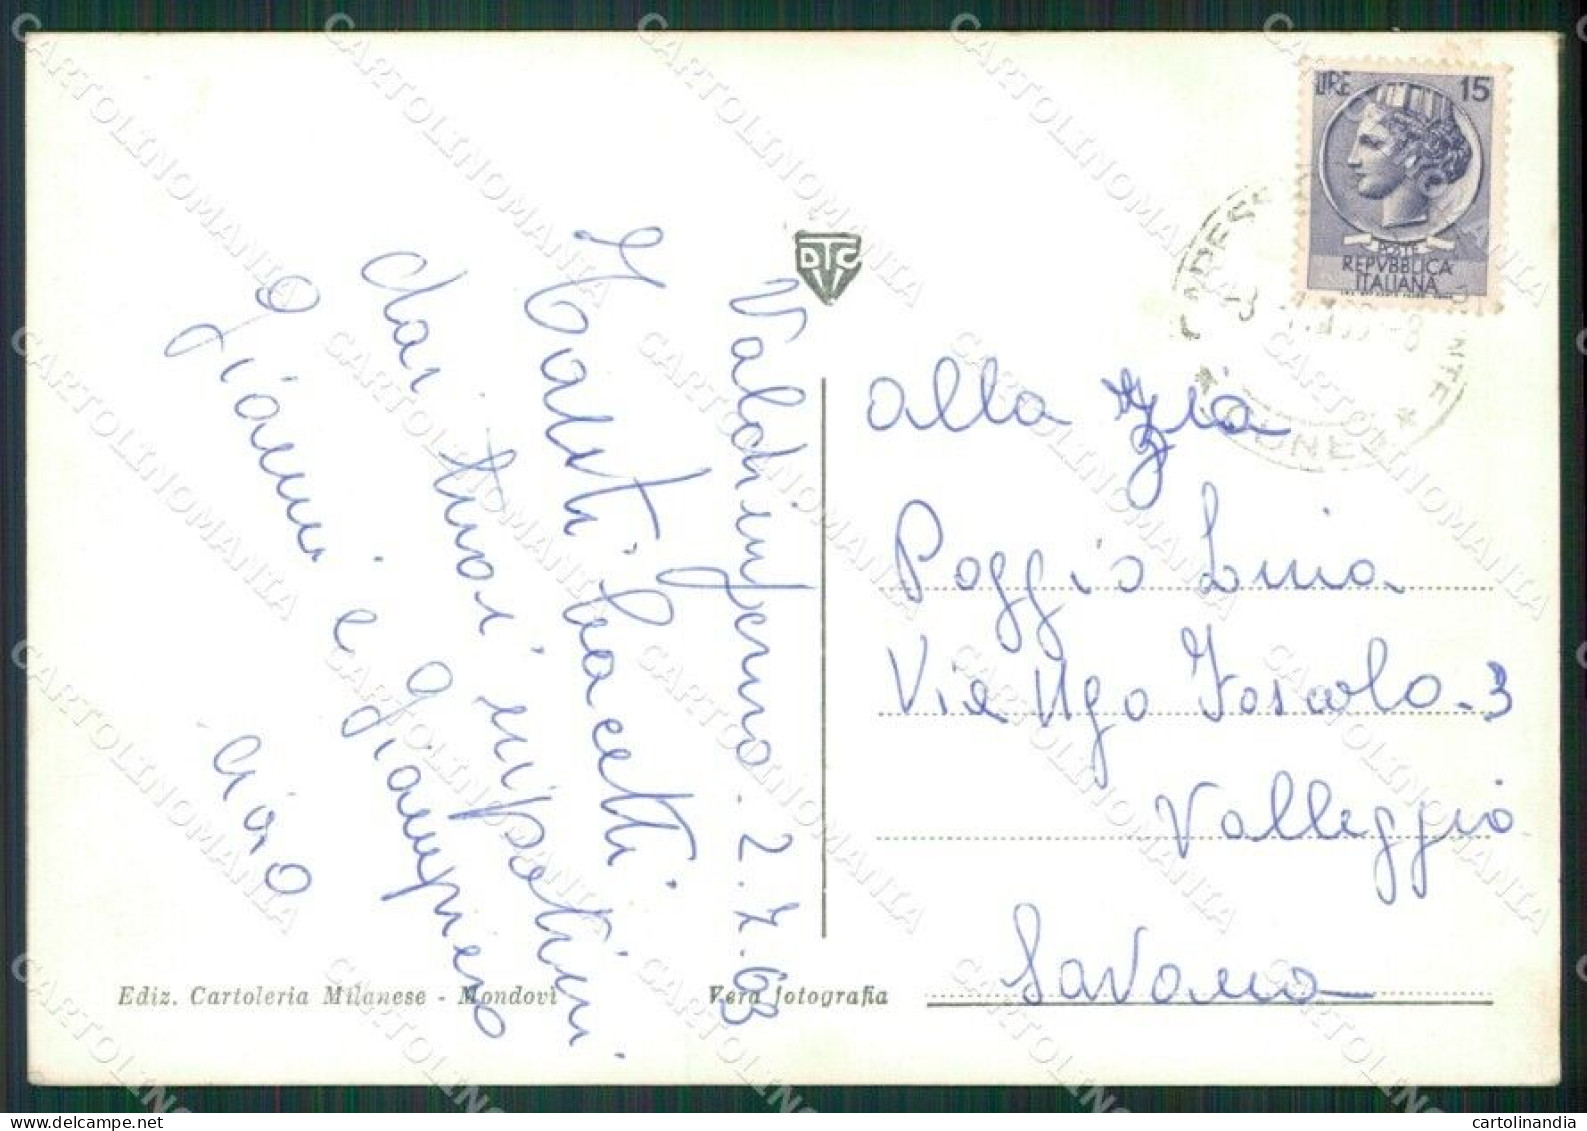 LIRE 15
POSTE
REPVBBLICA
ITALIANA
DTC
Valdinferno. 2.7.63
Tanti bacetti
dai tuoi nipotini.
Gianni e Giampiero
ciao
alla zia
Poggio Luisa
Via Ugo Foscolo-3
Valleggia
Savona
Ediz. Cartoleria Milanese - Mondovì
Vera fotografia
CARTOLINOMANIA
www.delcampe.net
cartolinandia